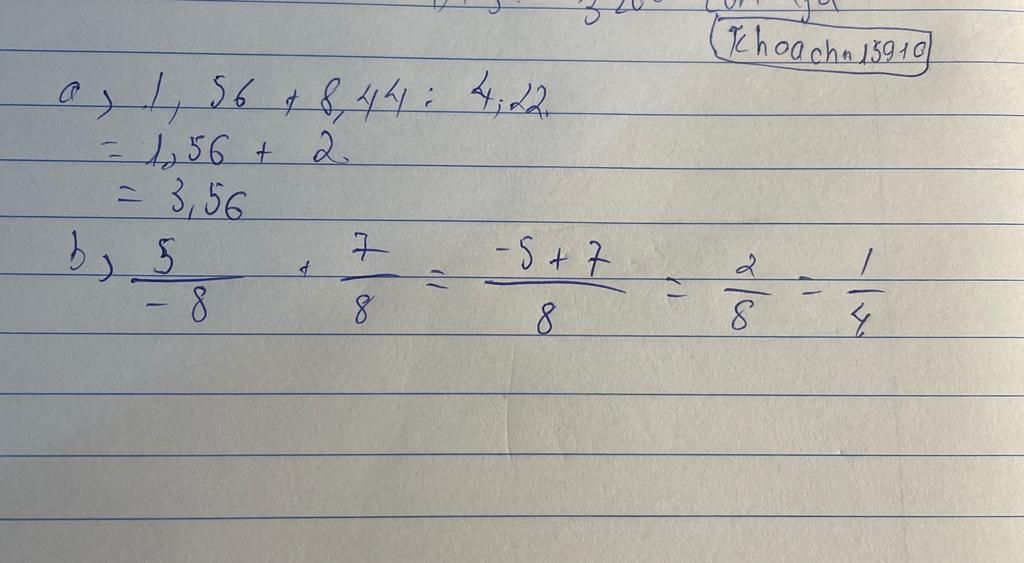 Khoachn15910
a) 1,56 + 8,44 : 4,22
= 1,56 + 2
= 3,56
b) 5/-8 + 7/8 = -5+7/8 = 2/8 = 1/4